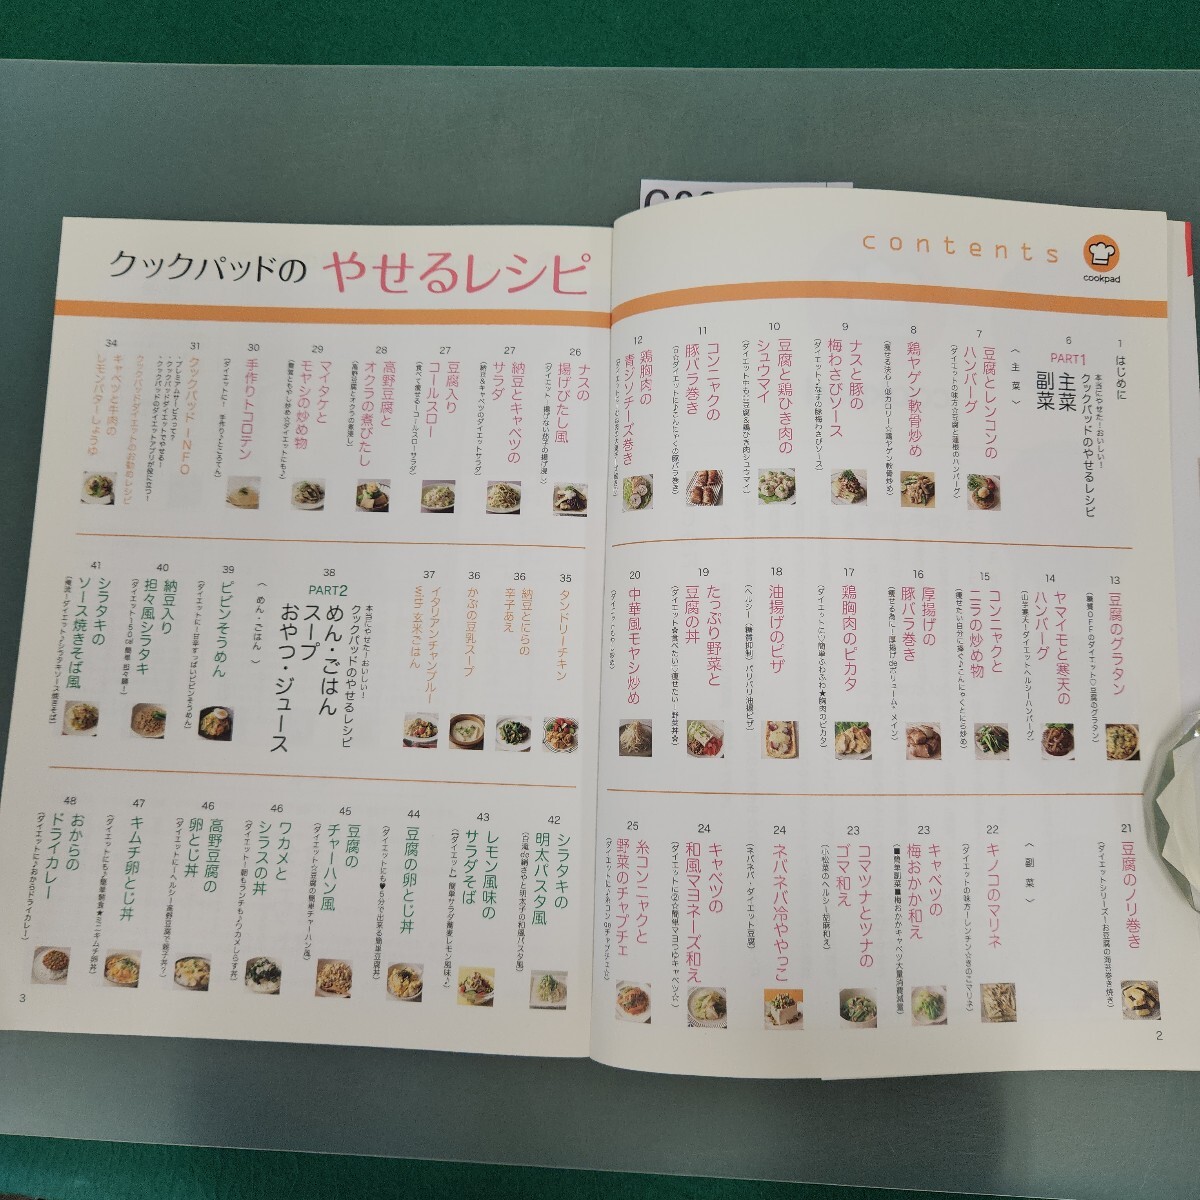 contents
cookpad
クックパッドの やせるレシピ
1
はじめに
6
PART1
本当にやせた!おいしい!
クックパッドのやせるレシピ
主菜
副菜
〈主菜〉
7
豆腐とレンコンの
ハンバーグ
(ダイエットの味方☆豆腐と蓮根のハンバーグ)
8
鶏ヤゲン軟骨炒め
(痩せる決心!低カロリー☆鶏ヤゲン軟骨炒め)
9
ナスと豚の
梅わさびソース
(ダイエット♪なすの豚梅わさびソース)
10
豆腐と鶏ひき肉の
シュウマイ
(ダイエット中も♡豆腐&鶏ひき肉シュウマイ)
11
コンニャクの
豚バラ巻き
12
鶏胸肉の
青ジソチーズ巻き
13
豆腐のグラタン
(糖質OFFのダイエット♡豆腐のグラタン)
14
ヤマイモと寒天の
ハンバーグ
(山芋寒天!ダイエットヘルシーハンバーグ)
15
コンニャクと
ニラの炒め物
(痩せたい自分に捧ぐ♪こんにゃくとにら炒め)
16
厚揚げの
豚バラ巻き
(痩せる為に!厚揚げdeボリューム、メイン)
17
鶏胸肉のピカタ
(ダイエットに♡簡単ふわふわ★胸肉のピカタ)
18
油揚げのピザ
(ヘルシー(糖質抑制)パリパリ油揚ピザ)
19
たっぷり野菜と
豆腐の丼
(ダイエット★食べたい♡痩せたい 野菜丼✿)
20
中華風モヤシ炒め
21
豆腐のノリ巻き
(ダイエットシリーズ!お豆腐の海苔巻き焼き)
〈副菜〉
22
キノコのマリネ
(ダイエットの味方!レンチン☆きのこマリネ)
23
キャベツの
梅おかか和え
(■簡単副菜■梅おかかキャベツ大量消費減量)
23
コマツナとツナの
ゴマ和え
(小松菜のヘルシー胡麻和え)
24
ネバネバ冷ややっこ
(ネバネバ・ダイエット豆腐)
24
キャベツの
和風マヨネーズ和え
(ダイエットに②☆簡単マヨつゆキャベツ☆)
25
糸コンニャクと
野菜のチャプチェ
2
26
ナスの
揚げびたし風
(ダイエット!揚げない茄子の揚げ浸し)
27
納豆とキャベツの
サラダ
(納豆&キャベツのダイエットサラダ)
27
豆腐入り
コールスロー
(食べて痩せる!コールスローサラダ)
28
高野豆腐と
オクラの煮びたし
(高野豆腐とオクラの煮浸し)
29
マイタケと
モヤシの炒め物
(舞茸ともやし炒め☆ダイエットにも♪)
30
手作りトコロテン
(ダイエットに! 手作り♪ところてん)
31
クックパッドINFO
・プレミアムサービスって?
・クックパッドダイエットでやせる!
・クックパッドのダイエットアプリが役に立つ!
クックパッドダイエットのお勧めレシピ
34
キャベツと牛肉の
レモンバターしょうゆ
35
タンドリーチキン
36
納豆とにらの
辛子あえ
36
かぶの豆乳スープ
37
イタリアンチャンプルー
with 玄米ごはん
38
PART2
本当にやせた!おいしい!
クックパッドのやせるレシピ
めん・ごはん
スープ
おやつ・ジュース
〈めん・ごはん〉
39
ビビンそうめん
(ダイエットに!甘辛すっぱいビビンそうめん)
40
納豆入り
担々風シラタキ
41
シラタキの
ソース焼きそば風
(痩流!ダイエット♪シラタキソース焼きそば)
42
シラタキの
明太パスタ風
(白滝de絹さやと明太子の和風パスタ風)
43
レモン風味の
サラダそば
(ダイエット】簡単サラダ蕎麦レモン風味♪)
44
豆腐の卵とじ丼
(ダイエットにも♥5分で出来る簡単豆腐丼)
45
豆腐の
チャーハン風
(ダイエット☆豆腐の簡単チャーハン風)
46
ワカメと
シラスの丼
(ダイエット!朝もランチも♪ワカメしらす丼)
46
高野豆腐の
卵とじ丼
(ダイエットに!ヘルシー高野豆腐で親子丼?)
47
キムチ卵とじ丼
(ダイエットにも♪簡単朝食★ミニキムチ卵丼)
48
おからの
ドライカレー
(ダイエットに♪おからドライカレー)
3